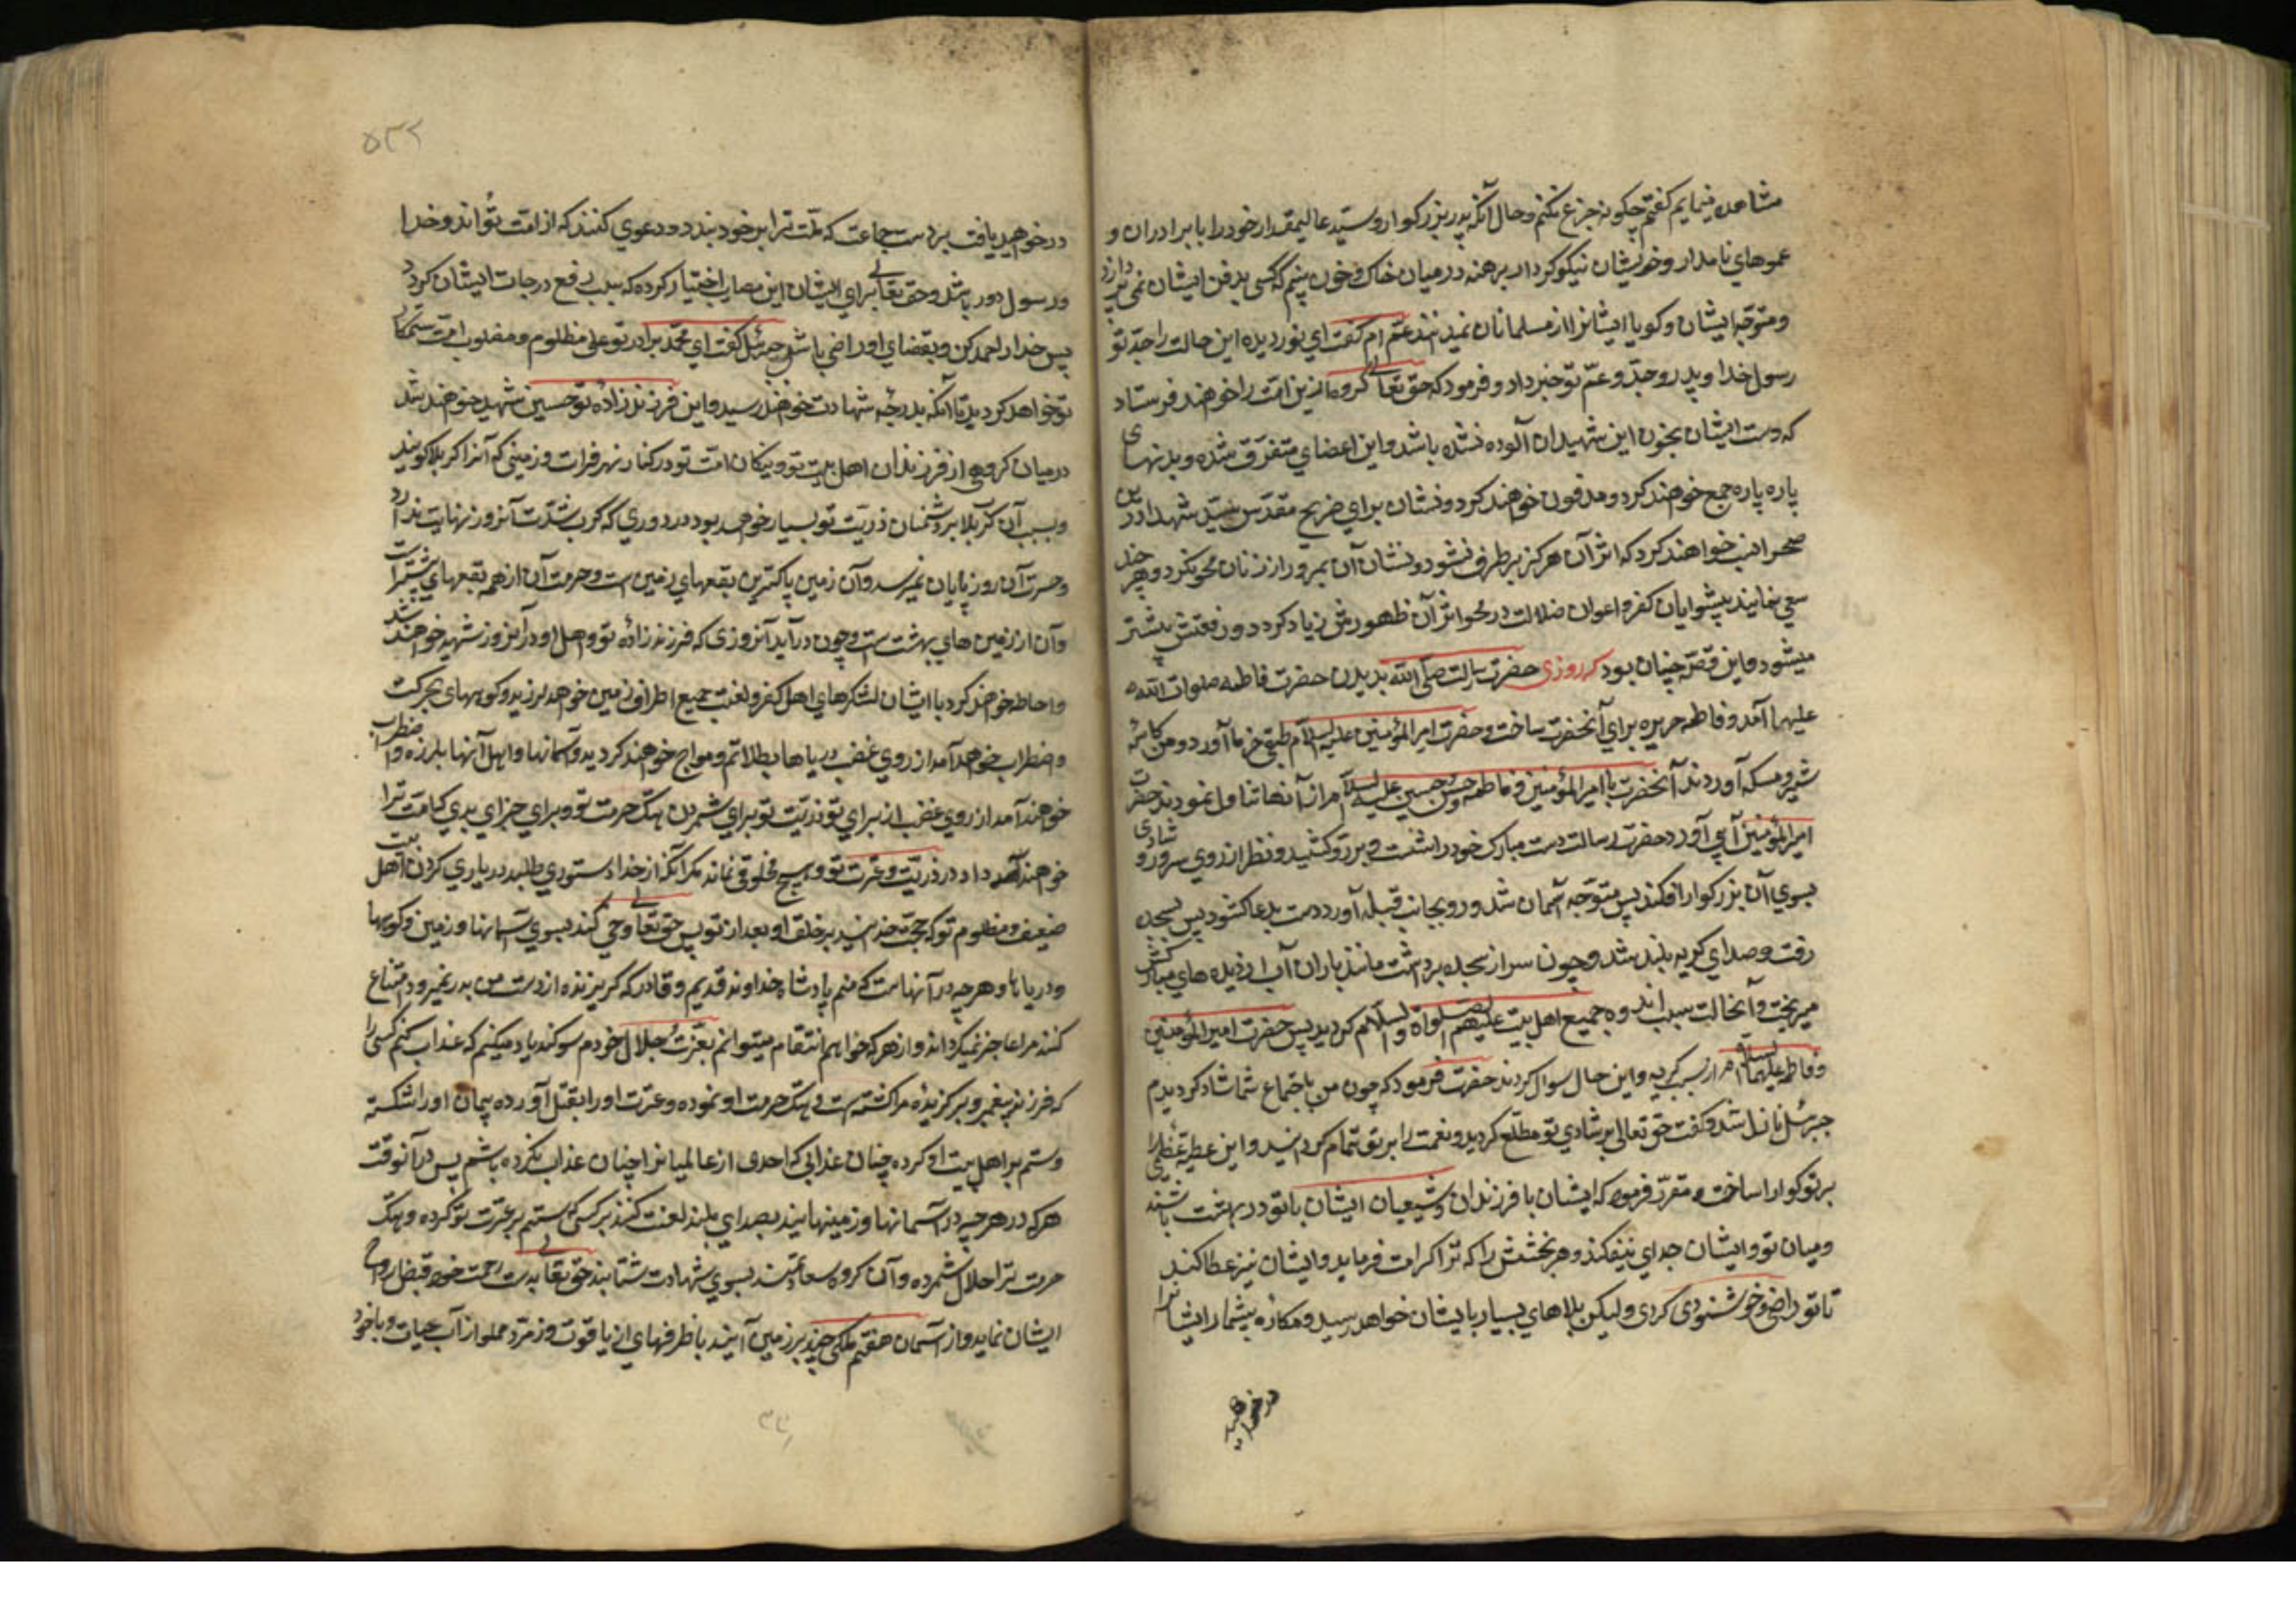 مشاهده مینمایم گفتم چگونه جزع نکنم وحال آنکه پدر بزرگوار وسید عالیمقدار خود را با برادران و
عموهای نامدار وخویشان نیکوکردار برهنه در میان خاک وخون میبینم که کسی بدفن ایشان نمی پردازد
ومتوجه ایشان وکویا ایشانرا از مسلمانان نمیدانند عمه ام گفت ای نور دیده این حالت را جد تو
رسول خدا وپدر وجد وعم تو خبر داد وفرمود که حق تعالی گروهی ازین امت را خواهند فرستاد
که دست ایشان بخون این شهیدان آلوده نشده باشد واین اعضای متفرق شده وبدنهای
پاره پاره جمع خواهند کرد ومدفون خواهند کرد ونشان برای ضریح مقدس سید شهدا درین
صحرا نصب خواهند کرد که اثر آن هرکز برطرف نشود ونشان آن بمرور ازمنان محو نکردد وهر چند
سعی نمایند پیشوایان کفر واعوان ضلالت در محو اثر آن ظهورش زیاد کردد ورفعتش بیشتر
میشود واین قصه چنان بود که روزی حضرت رسالت صلی الله بدیدن حضرت فاطمه صلوات الله
علیها آمد وفاطمه حریره برای آنحضرت ساخت وحضرت امیر المؤمنین علیه السلام طبق خرما آورد ومن کاسهٔ
شیر ومسکه آوردند آنحضرت با امیر المؤمنین وفاطمه وحسن وحسین علیه السلام از آنها تناول نمودند حضرت
امیر المؤمنین آبی آورد حضرت رسالت دست مبارک خود را شست وبر رو کشید ونظر از روی سرور وشادی
بسوی آن بزرکوار افکند پس متوجه آسمان شد ورو بجانب قبله آورد ودست بدعا کشود پس بسجده
رفت وصدای کریه بلند شد وچون سر از سجده برداشت مانند باران آب از دیده های مبارکش
میریخت وآنحالت سبب اندوه جمیع اهل بیت علیهم الصلواة والسلام کردید پس حضرت امیر المؤمنین
وفاطمه علیهما السلام از سبب کریه واین حال سوال کردند حضرت فرمود که چون من باجتماع شما شاد کردیدم
جبرئیل نازل شد وگفت حق تعالی بر شادی تو مطلع کردید ونعمت را بر تو تمام کردانید واین عطیه عظمی را
بر تو کوارا ساخت ومقرر فرمود که ایشان با فرزندان وشیعیان ایشان با تو در بهشت باشند
ومیان تو وایشان جدای نیفکند وهر بخششی را که ترا کرامت فرماید وایشان نیز عطا کند
تا تو راضی وخوشنودی کردی ولیکن بلاهای بسیار بایشان خواهد رسید ومکاره بیشمار ایشانرا
در خواهید
۵۳۲
در خواهید یافت بر دست جماعت که ملت ترا بر خود بندد ودعوی کنند که از امت تو اند وخدا
ورسول دور باشند وحق تعالی برای ایشان این مصایب اختیار کرده که سبب رفع درجات ایشان کردد
پس خدا را حمد کن وبقضای او راضی باش پس جبرئیل گفت ای محمد برادر تو علی مظلوم ومغلوب امت ستمکار
تو خواهد کردید تا آنکه بدرجه شهادت خواهند رسید واین فرزند زاده تو حسین شهید خواهند شد
در میان کروهی از فرزندان اهل بیت تو ونیکان امت تو در کنار نهر فرات وزمینی که آنرا کربلا کویند
وبسبب آن کربلا بر دشمنان ذریت تو بسیار خواهد بود در دوری که کرب شدت آنروز نهایت ندارد
وحسرت آن روز پایان نمیرسد وآن زمین پاکترین بقعهای زمین است وحرمت آن از همه بقعهای بیشترست
وآن از زمین های بهشت ست وچون در آید آنروزی که فرزند زادهٔ تو واهل او در آنروز شهید خواهند شد
واحاطه خواهند کرد با ایشان لشکرهای اهل کفر ولعنت جمیع اطراف زمین خواهد لرزید وکوههای بحرکت
واضطراب خواهد آمد از روی غضب دریاها بطلاتم ومواج خواهند کردید وآسمانها واهل آنها بلرزه واضطراب
خواهند آمد از روی غضب از برای تو وذریت تو برای شمردن هتک حرمت تو وبرای جزای بدی که امت ترا
خواهند داد در ذریت وعترت تو وهیچ مخلوقی نماند مکر آنکه از خدا دستوری طلبد در یاری کردن اهل بیت
ضعیف ومظلوم تو که حجت خدایند بر خلق او بعد از تو پس حق تعالی وحی کند بسوی آسمانها وزمین وکوهها
ودریاها وهر چه در آنهاست که منم پادشاه خداوند قدیم وقادر که کریزنده از دست من بدر نمیرود وامتناع
کننده مرا عاجز نمیکرداند واز هر که خواهم انتقام میتوانم بعزت وجلال خودم سوکند یاد میکنم که عذاب کنم کسی را
که فرزند پیغمبر وبرکزیدهٔ مرا کشته ست وهتک حرمت او نموده وعترت او را بقتل آورده پیمان او را شکسته
وستم بر اهل بیت او کرده چنان عذابی که احدی از عالمیانرا چنان عذاب نکرده باشم پس در آنوقت
هرکه در هرچیه در آسمانها وزمینهایند بصدای بلند لعنت کنند بر کسی که ستم بر عترت تو کرده وهتک
حرمت ترا حلال شمرده وآن کروه سعادتمند بسوی شهادت شتابند حق تعالی بدست رحمت خود قبض ارواح
ایشان نماید واز آسمان هفتم ملکی چند بر زمین آیند با ظرفهای از یاقوت وزمرد مملو از آب حیات وبا خود